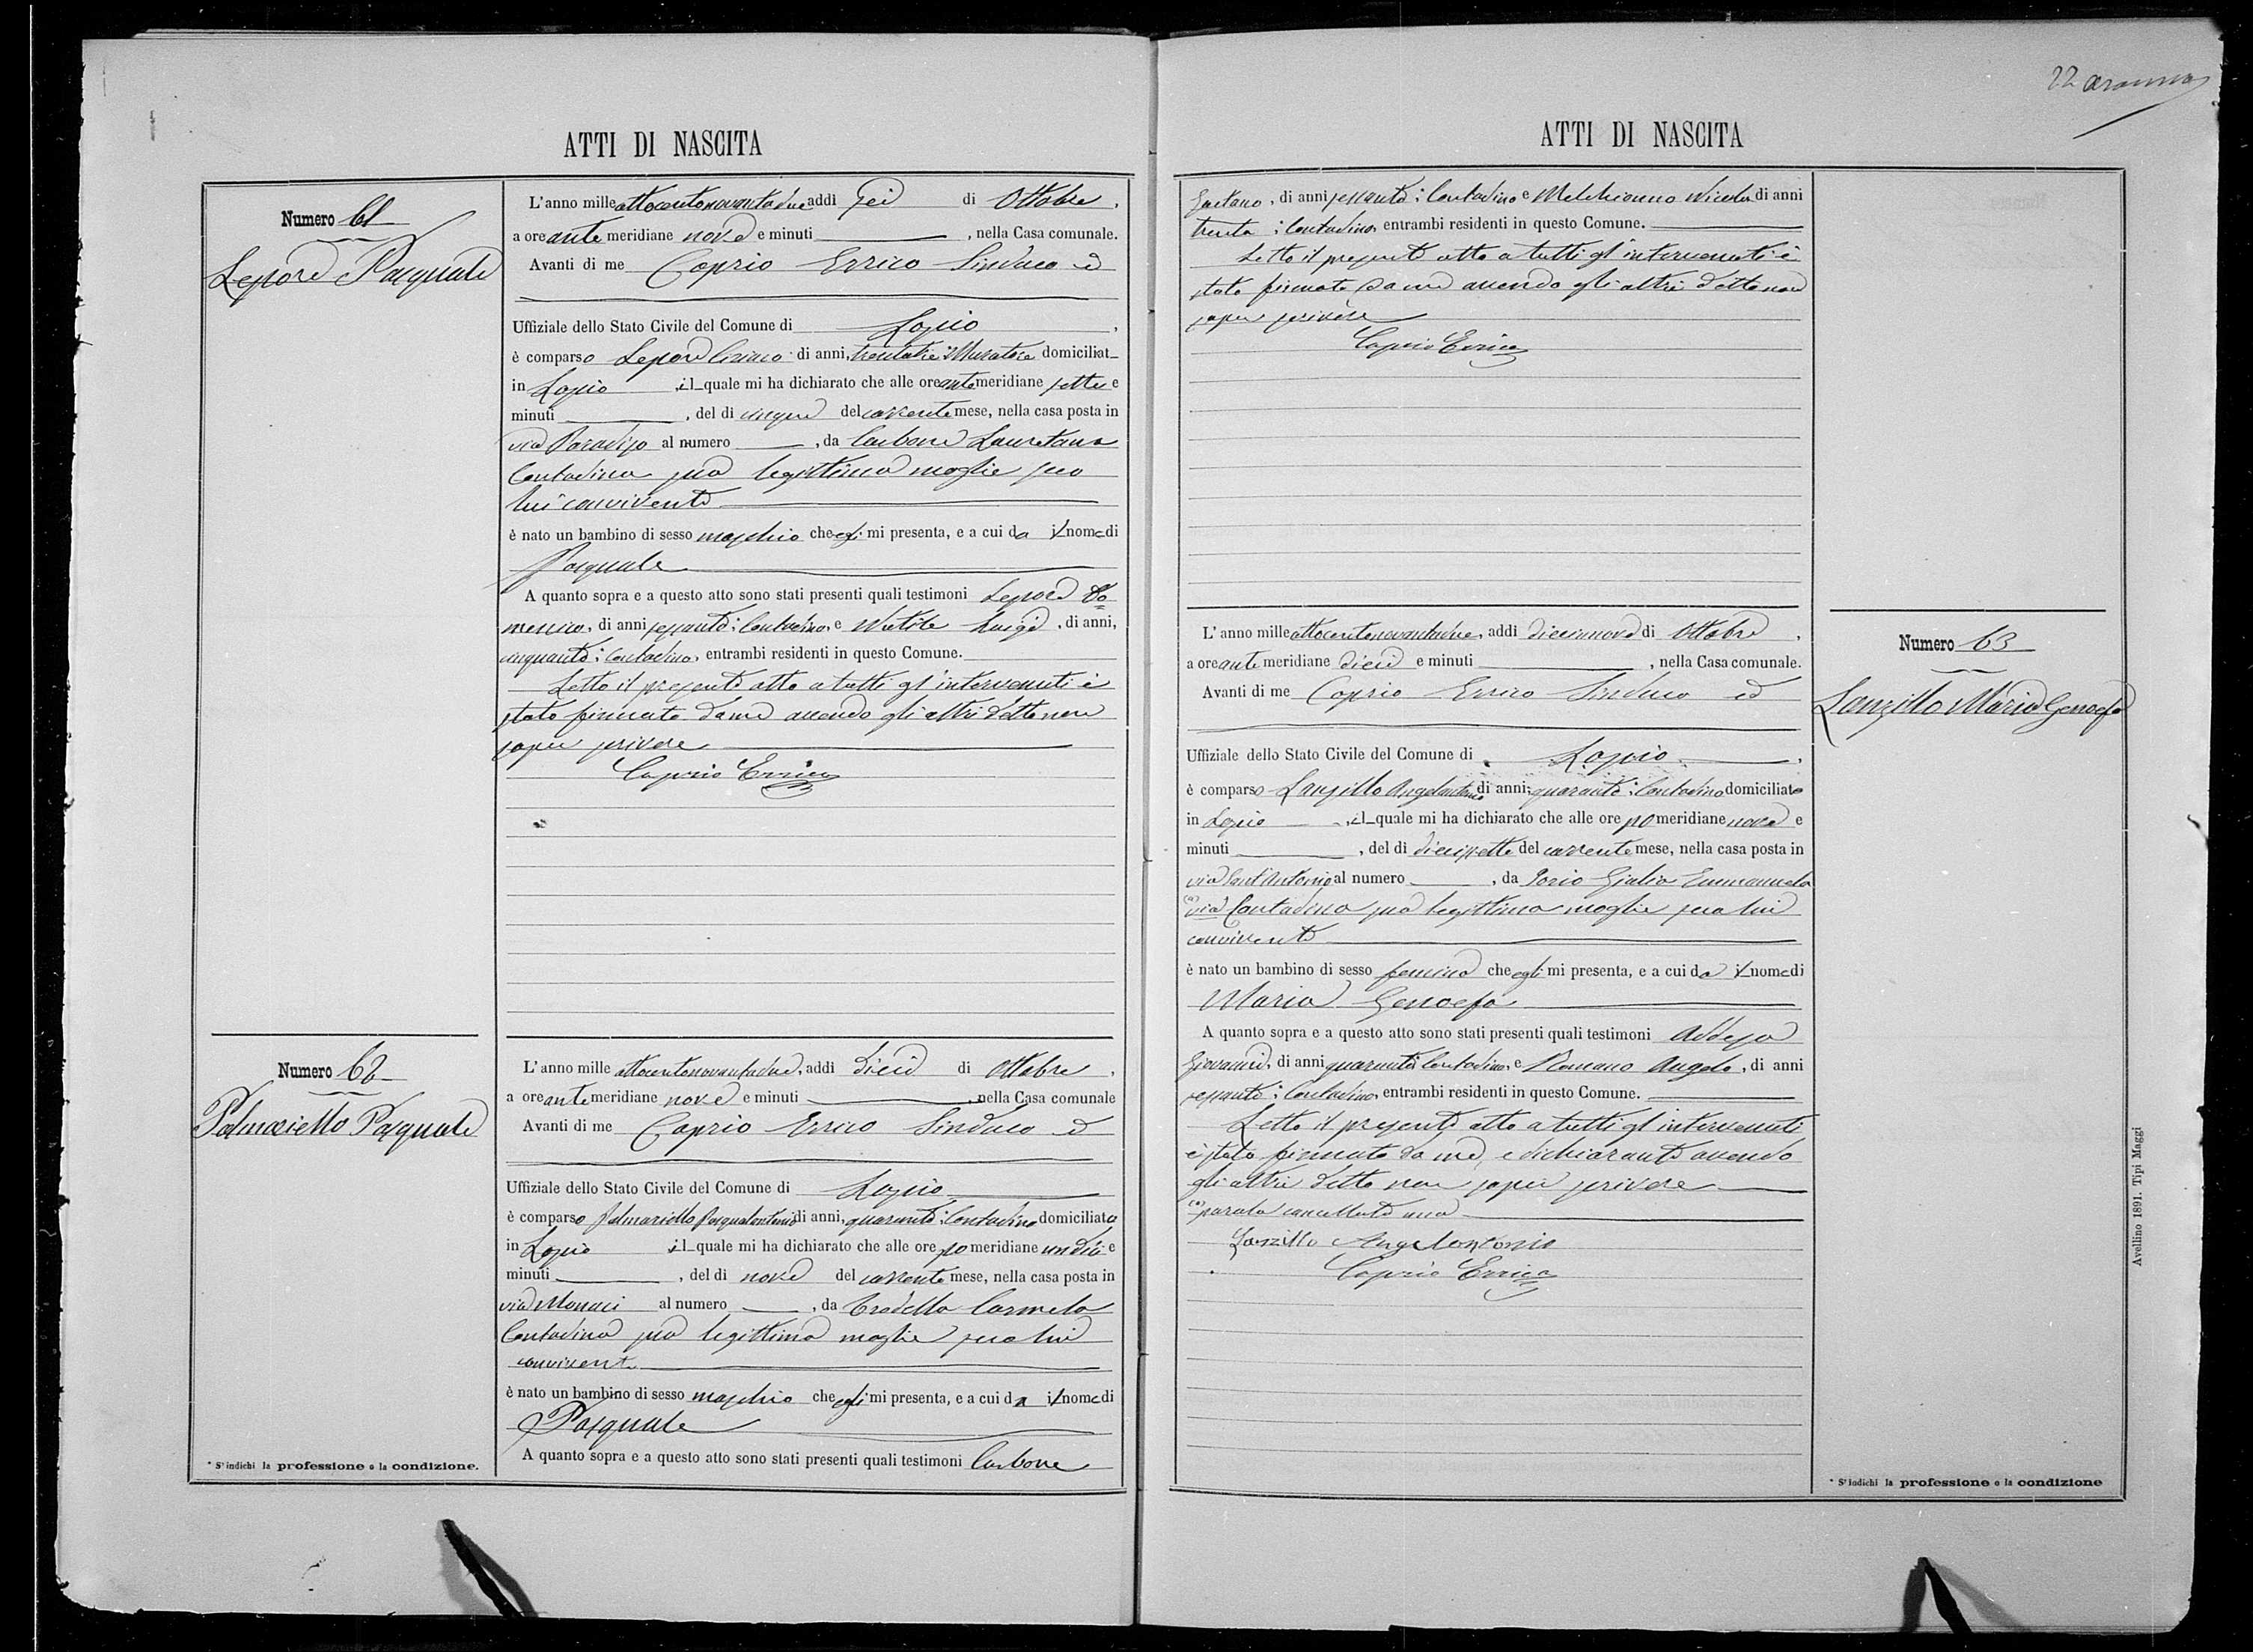 ATTI DI NASCITA
Numero 61
Lepore Pasquale
L'anno mille ottocentonovantadue addì sei di Ottobre,
a ore ante meridiane nove e minuti , nella Casa comunale.
Avanti di me Caprio Errico Sindaco ed
Uffiziale dello Stato Civile del Comune di Lapio,
è comparso Lepore Ciriaco di anni, trentatre Muratore domiciliat
in Lapio, il quale mi ha dichiarato che alle ore ante meridiane sette e
minuti , del dì cinque del corrente mese, nella casa posta in
via Paradiso al numero , da Carbone Lauretana
Contadina sua legittima moglie seco
lui convivente
è nato un bambino di sesso maschio che egli mi presenta, e a cui da il nome di
Pasquale
A quanto sopra e a questo atto sono stati presenti quali testimoni Lepore Do=
menico, di anni sessanta: Contadino, e Luigi, di anni,
cinquanta: Contadino, entrambi residenti in questo Comune.
Letto il presente atto a tutti gl'intervenuti è
stato firmato da me avendo gli altri detto non
saper scrivere
Caprio Errico
Numero 62
Palmariello Pasquale
L'anno mille ottocentonovantadue, addì dieci di Ottobre,
a ore ante meridiane nove e minuti , nella Casa comunale
Avanti di me Caprio Errico Sindaco ed
Uffiziale dello Stato Civile del Comune di Lapio
è comparso Palmariello Pasqualantonio di anni, quaranta: Contadino domiciliato
in Lapio il quale mi ha dichiarato che alle ore pomeridiane undici e
minuti , del dì nove del corrente mese, nella casa posta in
via Monaci al numero , da Carmela
Contadina sua legittima moglie seco lui
convivente
è nato un bambino di sesso maschio che egli mi presenta, e a cui da il nome di
Pasquale
A quanto sopra e a questo atto sono stati presenti quali testimoni Carbone
* S'indichi la professione o la condizione.
22
ATTI DI NASCITA
Gaetano, di anni sessanta: Contadino e Melchionno Nicola di anni
trenta: Contadino, entrambi residenti in questo Comune.
Letto il presente atto a tutti gl'intervenuti è
stato firmato da me avendo gli altri detto non
saper scrivere
Caprio Errico
L'anno mille ottocentonovantadue, addì diecinove di Ottobre,
a ore ante meridiane dieci e minuti , nella Casa comunale.
Avanti di me Caprio Errico Sindaco ed
Uffiziale dello Stato Civile del Comune di Lapio.
è comparso Lanzillo Angelantonio di anni, quaranta: Contadino domiciliato
in Lapio, il quale mi ha dichiarato che alle ore pomeridiane nove e
minuti , del dì diecissette del corrente mese, nella casa posta in
via Sant'Antonio al numero , da Iorio Giulia Emmanuela
(a) via Contadina sua legittima moglie seco lui
convivente
è nato un bambino di sesso femina che egli mi presenta, e a cui da il nome di
Maria Genoefa
A quanto sopra e a questo atto sono stati presenti quali testimoni Addesa
Giovanni, di anni quaranta Contadino, e Romano Angelo, di anni
sessanta: Contadino, entrambi residenti in questo Comune.
Letto il presente atto a tutti gl'intervenuti
è stato firmato da me, e dichiarante avendo
gli altri detto non saper scrivere
(a) parola cancellata una
Lanzillo Angelantonio
Caprio Errico
Numero 63
Lanzillo Maria Genoefa
* S'indichi la professione o la condizione
Avellino 1891. Tipi Maggi